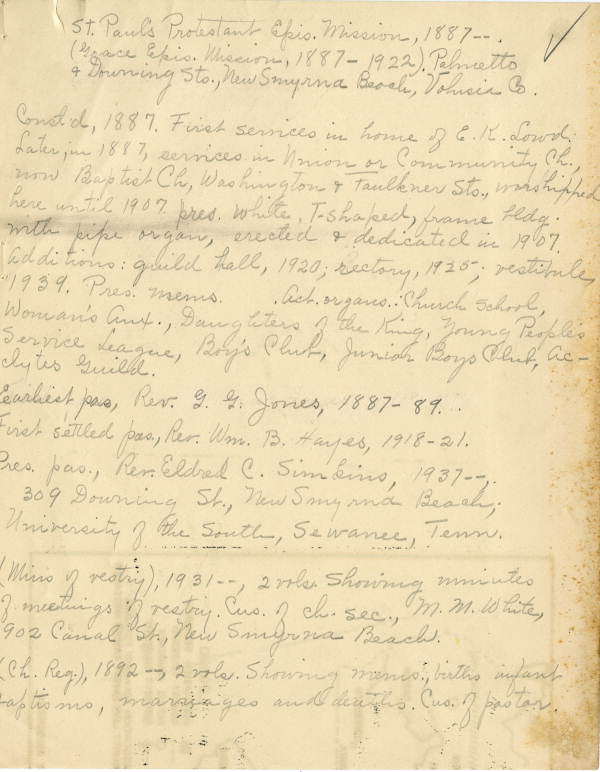 St. Paul's Protestant Epis. Mission, 1887--.
(Grace Epis. Mission, 1887-1922). Palmetto
& Downing Sts., New Smyrna Beach, Volusia Co.
Const'd, 1887. First services in home of E. K. Lowd;
Later, in 1887, services in Union or Community Ch.,
now Baptist Ch, Washington & Faulkner Sts., worshipped
here until 1907. pres. white, T-shaped, frame bldg.
with pipe organ, erected & dedicated in 1907.
Additions: guild hall, 1920; rectory, 1925; vestibule,
1939. Pres. mems. . Act. organs.: Church School,
Woman's Aux., Daughters of the King, Young People's
Service League, Boy's Club, Junior Boys Club, Ac-
olytes Guild.
Earliest pas, Rev. G. G. Jones, 1887-89.
First settled pas., Rev. Wm. B. Hayes, 1918-21.
Pres. pas., Rev. Eldred C. Simkins, 1937--,
309 Downing St., New Smyrna Beach;
University of the South, Sewanee, Tenn.
(Mins of vestry), 1931--, 2 vols. Showing minutes
of meetings of vestry. Cus. of ch. sec., M. M. White,
902 Canal St., New Smyrna Beach.
(Ch. Reg.), 1892--, 2 vols. Showing mems., births infant
baptisms, marriages and deaths. Cus. of pastor.